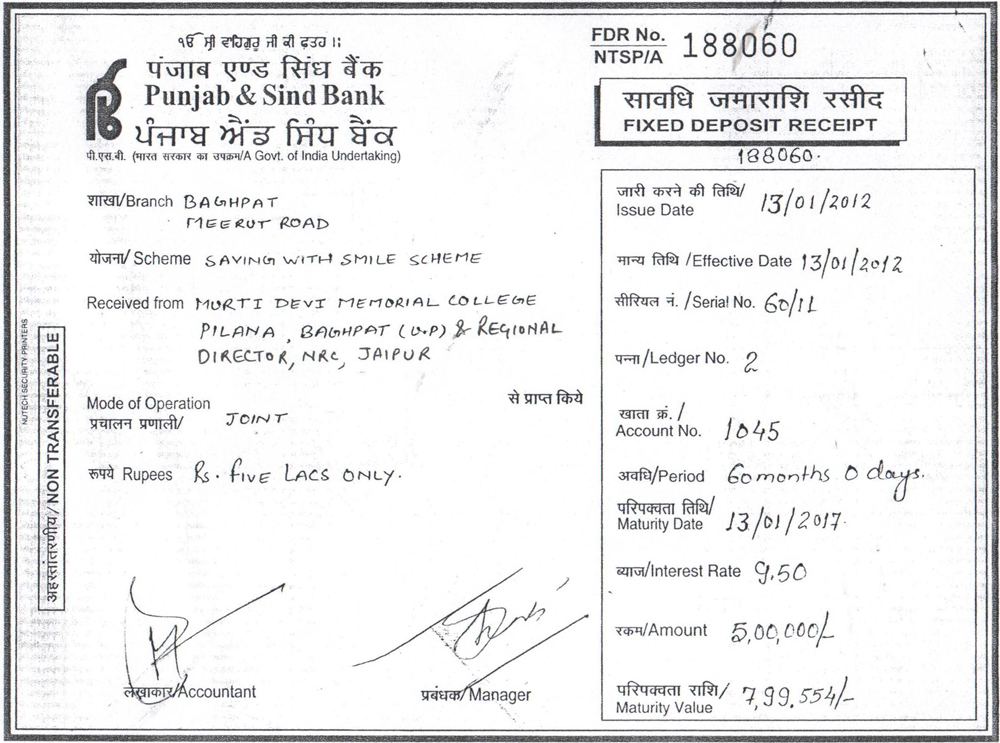 ੴ ਸ੍ਰੀ ਵਾਹਿਗੁਰੂ ਜੀ ਕੀ ਫ਼ਤਹ ।।
पंजाब एण्ड सिंध बैंक
Punjab & Sind Bank
ਪੰਜਾਬ ਐਂਡ ਸਿੰਧ ਬੈਂਕ
पी.एस.बी. (भारत सरकार का उपक्रम/A Govt. of India Undertaking)
FDR No. 188060
NTSP/A
सावधि जमाराशि रसीद
FIXED DEPOSIT RECEIPT
188060.
शाखा/Branch BAGHPAT
MEERUT ROAD
योजना/ Scheme SAVING WITH SMILE SCHEME
Received from MURTI DEVI MEMORIAL COLLEGE
PILANA, BAGHPAT (U.P) & REGIONAL
DIRECTOR, NRC, JAIPUR
से प्राप्त किये
Mode of Operation
प्रचालन प्रणाली/ JOINT
रूपये Rupees Rs. FIVE LACS ONLY.
लेखाकार/Accountant
प्रबंधक/Manager
NUTECH SECURITY PRINTERS
अहस्तांतरणीय/NON TRANSFERABLE
जारी करने की तिथि/
Issue Date 13/01/2012
मान्य तिथि /Effective Date 13/01/2012
सीरियल नं. /Serial No. 60/11
पन्ना/Ledger No. 2
खाता क्रं. /
Account No. 1045
अवधि/Period 60 months 0 days.
परिपक्वता तिथि/
Maturity Date 13/01/2017.
ब्याज/Interest Rate 9.50
रकम/Amount 5,00,000/-
परिपक्वता राशि/
Maturity Value 7,99,554/-